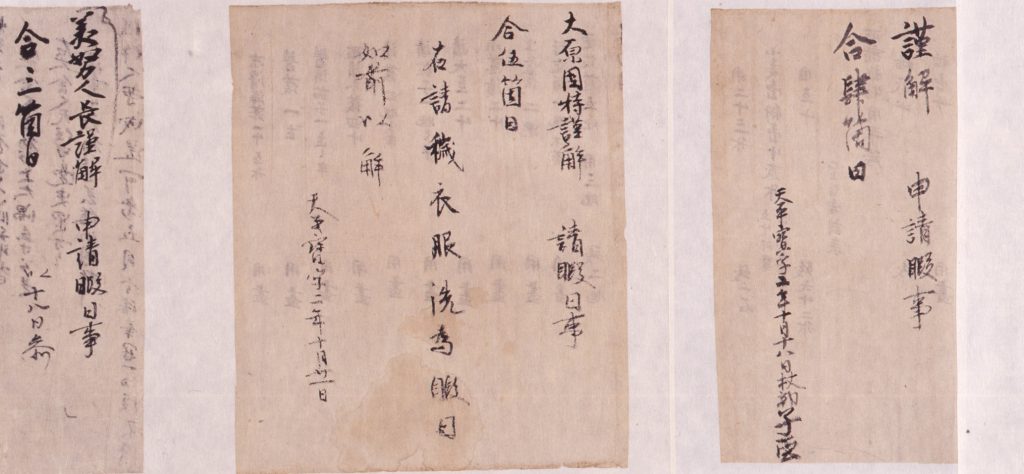 謹解 申請暇事
合肆箇日
天平寶字五年十月十八日
大原国持謹解 請暇日事
合伍箇日
右請穢衣服洗為暇日
如前以解
天平寶字二年十月廿一日
美努人長謹解 申請暇日事
合三箇日 以十八日参